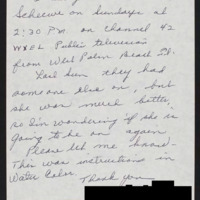 Scheewe on Sundays at
2:30 P.M. on channel 42
WXEL Public television
from West Palm Beach Fl.
Last Sun they had
someone else on, but
she was much better,
so I'm wondering if she is
going to be on again
Please let me know -
This was instructions in
Water Color.
Thank you